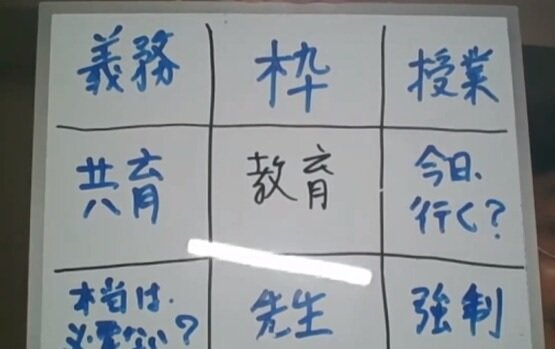 義務
枠
授業
共育
教育
今日、
行く?
本当は、
必要ない?
先生
強制